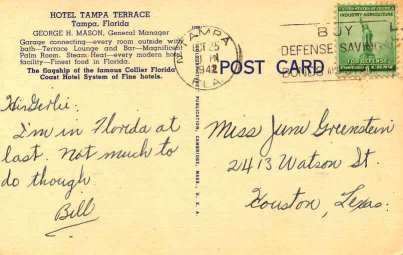 HOTEL TAMPA TERRACE
Tampa, Florida
GEORGE H. MASON, General Manager
Garage connecting—every room outside with
bath—Terrace Lounge and Bar—Magnificent
Palm Room. Steam Heat—every modern hotel
facility—Finest food in Florida.
The flagship of the famous Collier Florida
Coast Hotel System of Fine hotels.
TAMPA
25
PM
1942
FLA.
BUY
DEFENSE SAVINGS
BONDS
UNITED STATES
INDUSTRY AGRICULTURE
FOR DEFENSE
POST CARD
CAMBRIDGE, MASS., U.S.A.
I'm in Florida at
last. Not much to
do though.
Bill
Miss June Greenstein
2413 Watson St.
Houston, Texas.